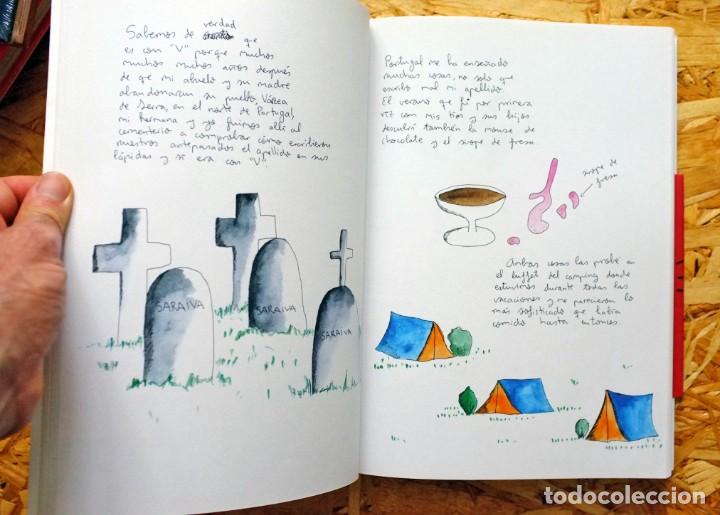 Sabemos de verdad que
es con "V" porque muchos
muchos muchos años después
de que mi abuelo y su madre
abandonaran su pueblo, Várzea
de Serra, en el norte de Portugal,
mi hermana y yo fuimos allí al
cementerio a comprobar cómo escribieron
nuestros antepasados el apellido en sus
lápidas y sí era con "V".
SARAIVA
SARAIVA
SARAIVA
Portugal me ha enseñado
muchas cosas, no solo que
escribo mal mi apellido.
El verano que fui por primera
vez con mis tíos y sus hijos
descubrí también la mousse de
chocolate y el sirope de fresa
sirope de
fresa
Ambas cosas las probé en
el buffet del camping donde
estuvimos durante todas las
vacaciones y me parecieron lo
más sofisticado que había
comido hasta entonces.
todocoleccion
todocoleccion.net